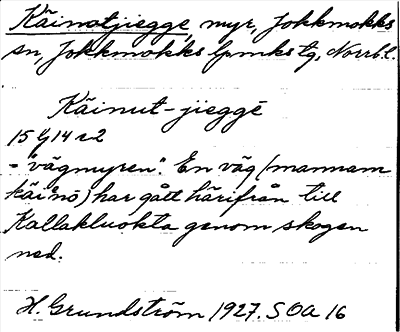 Käinotjiegge, myr, Jokkmokks
sn, Jokkmokks lpmkstg, Norrb.l.
Käinut-jieggē
15 G 14 r-2
="vägmyren". En väg (mannam
käi'nō) har gått härifrån till
Kallakluokta genom skogen
ned.
H. Grundström 1927. SOA 16